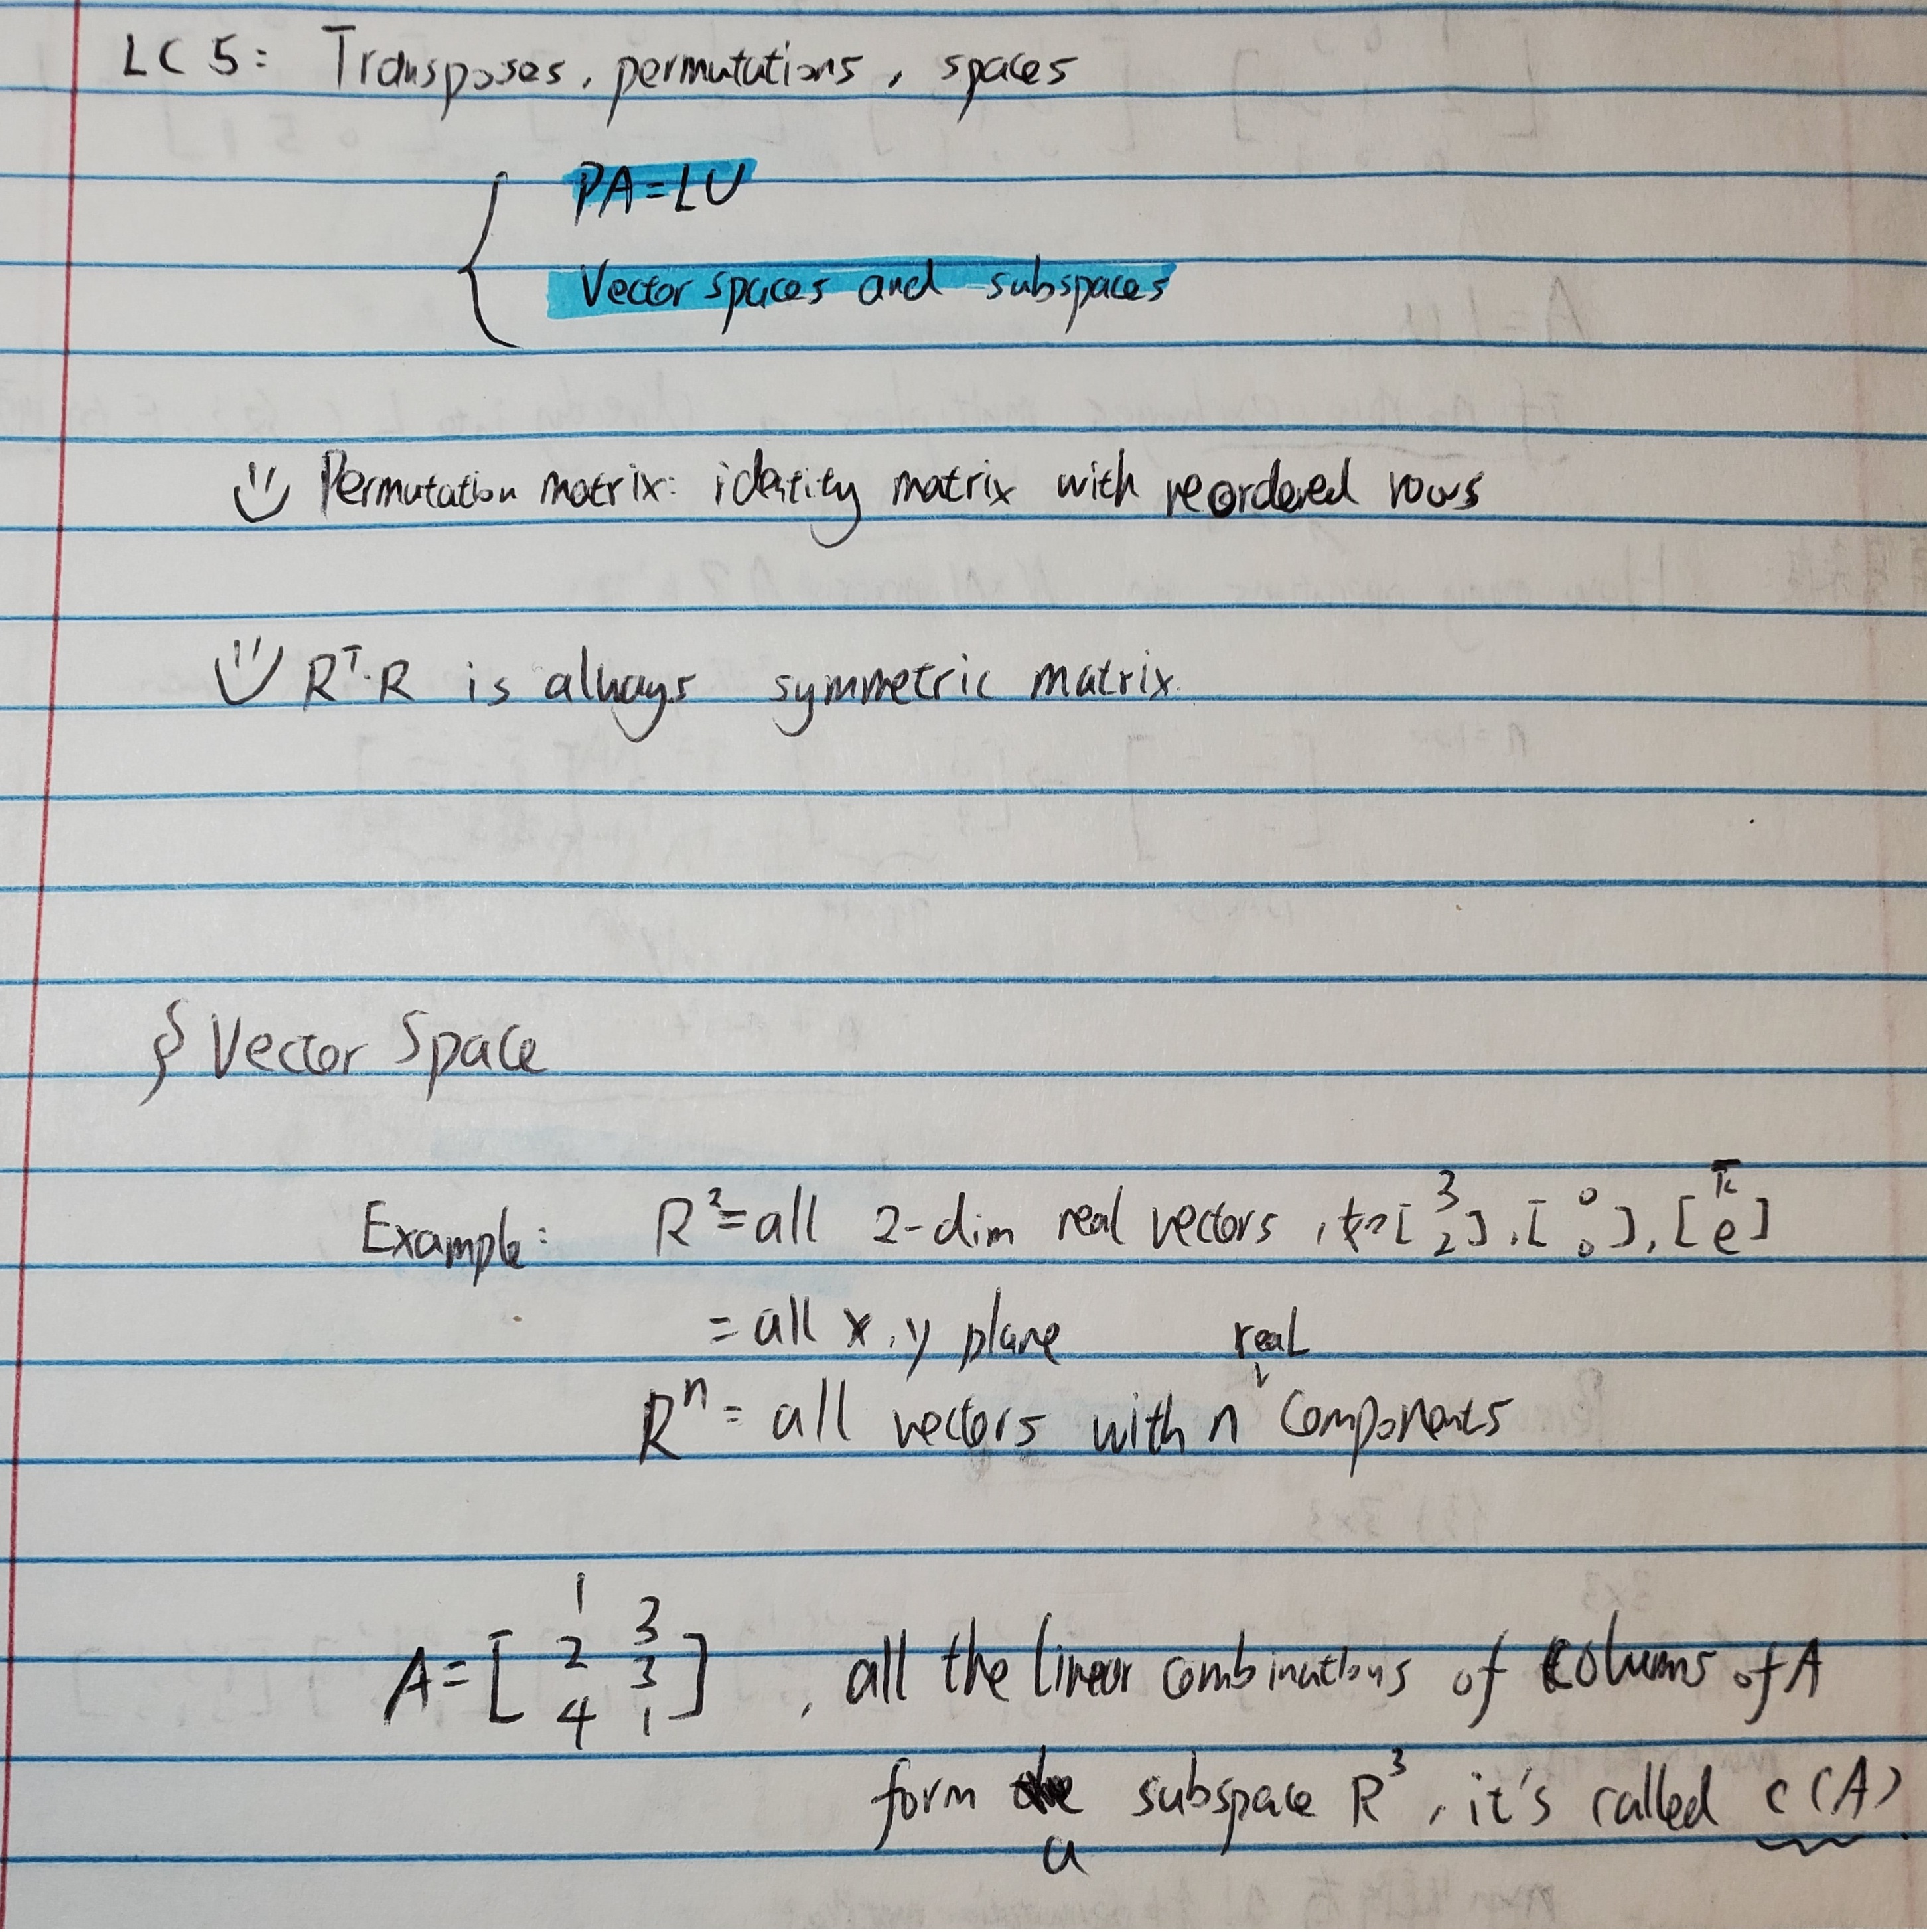 LC 5: Transposes, permutations, spaces
PA=LU
Vector spaces and subspaces
Permutation matrix: identity matrix with reordered rows
Rᵀ·R is always symmetric matrix.
§ Vector Space
Example: R²=all 2-dim real vectors, [3 2], [0 0], [π e]
= all x, y plane
Rⁿ = all vectors with n real components
A=[1 3
2 3
4 1], all the linear combinations of columns of A
form a subspace R³, it's called C(A).